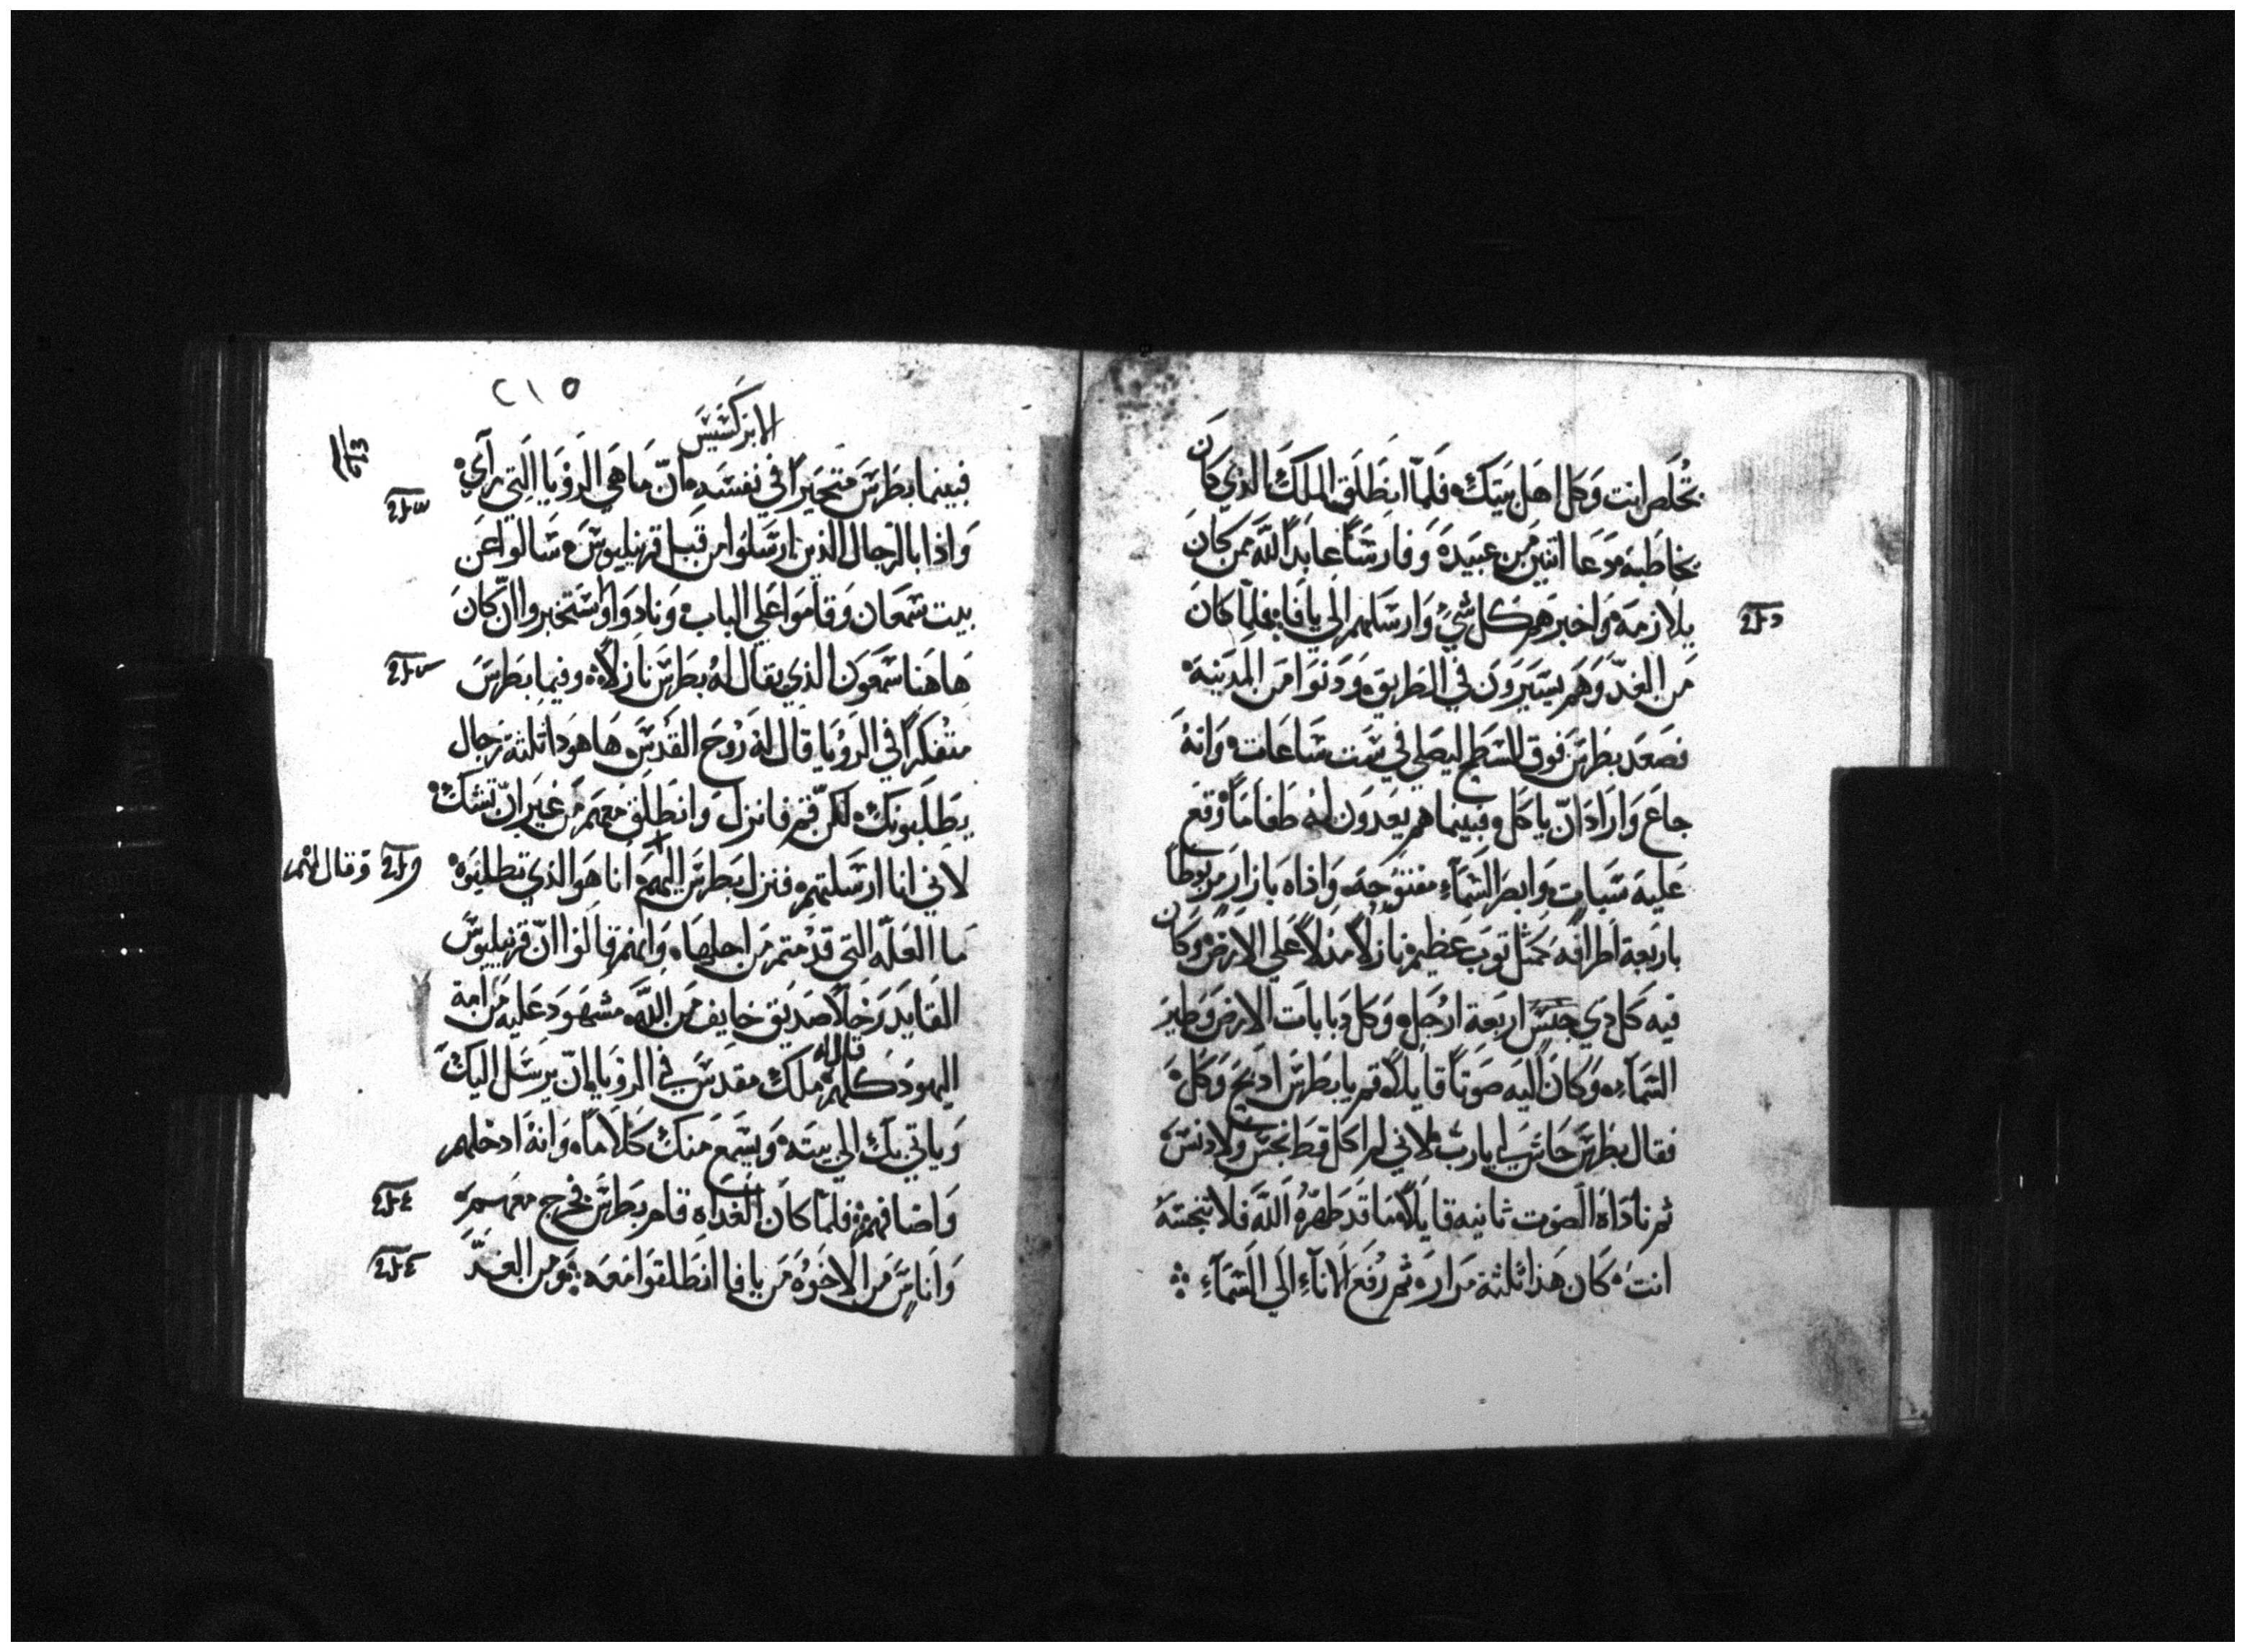 تخلص انت وكل اهل بيتك فلما انطلق الملك الذي كان
يخاطبه دعا اتنين من عبيده وفارسا عابدا لله ممن كان
يلازمه واخبرهم كل شي وارسلهم الي يافا فلما كان
من الغد وهم يسيرون في الطريق ودنوا من المدينه
فصعد بطرس فوق السطح ليصلي في ست ساعات وانه
جاع واراد ان ياكل وفبينما هم يعدون له طعاما وقع
عليه سبات وابصر السماء مفتوحه واذاه بازار مربوطا
باربعة اطرافه كمثل توب عظيم نازلا مدلا علي الارض وكان
فيه كل دي جنس اربعة ارجل وكل دبابات الارض وطير
السماء وكان اليه صوتا قايلا قم يابطرس ادبح وكل
فقال بطرس حاشا لي يارب لاني لم اكل قط نجس ولادنس
ثم ناداه الصوت ثانيه قايلا ما قد طهره الله فلا تنجسه
انت كان هذا ثلثة مرار ثم رفع الاناء الي السماء
٢١٥
الابركسيس
فبينما بطرس متحيرا في نفسه ان ما هي الرؤيا التي راي
واذا بالرجال الذين ارسلوا من قبل قرنيليوس سالوا عن
بيت شمعان وقاموا علي الباب ونادوا واستخبروا ان كان
هاهنا سمعون الذي يقال له بطرس نازلا وفيما بطرس
متفكرا في الرؤيا قال له روح القدس ها هوذا ثلثة رجال
يطلبونك لكن قم فانزل وانطلق معهم من غير ان تشك
لاني انا ارسلتهم فنزل بطرس اليهم انا هو الذي تطلبوه
وقال لهم
ما العله التي قدمتم من اجلها وانهم قالوا ان قرنيليوس
القايد رجلا صديق خايف من الله مشهود عليه من امة
اليهود كلهم قال له ملك مقدس في الرؤيا بان يرسل اليك
وياتي بك الي بيته ويسمع منك كلاما وانه ادخلهم
واضافهم فلما كان الغداه قام بطرس فخرج معهم
واناس من الاخوه من يافا انطلقوا معه ومن الغد